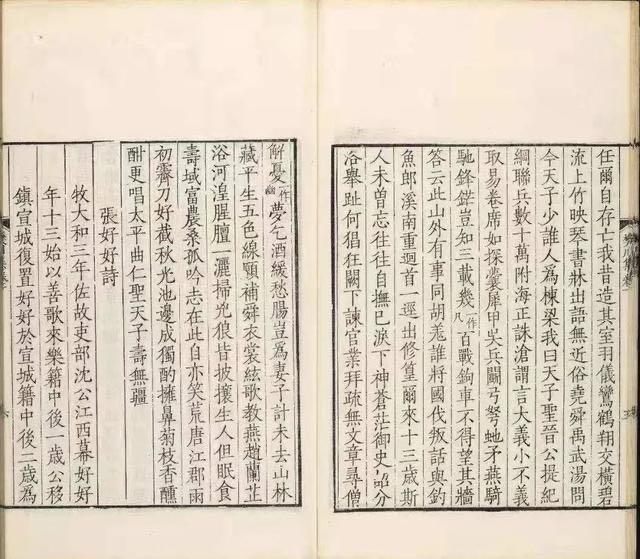 任爾自存亡我昔造其室羽儀鸞鶴翔交橫碧
流上竹映琴書牀出語無近俗堯舜禹武湯問
今天子少誰人為棟梁我曰天子聖晉公提紀
綱聯兵數十萬附海正誅滄謂言大義小不義
取易卷席如探囊犀甲吳兵鬭弓弩蛇矛燕騎
馳鋒鋩豈知三載幾一作百戰鉤車不得望其牆
答云此山外有事同胡羌誰將國伐叛話與釣
魚郎溪南重迴首一逕出修篁爾來十三歲斯
人未曾忘往往自撫已淚下神蒼茫御史詔分
洛舉趾何猖狂闕下諫官業拜疏無文章尋僧
解憂一作幽夢乞酒緩愁腸豈為妻子計未去山林
藏平生五色線願補舜衣裳絃歌教燕趙蘭芷
浴河湟腥膻一灑掃兇狼皆披攘生人但眠食
壽域富農桑孤吟志在此自亦笑荒唐江郡雨
初霽刀好截秋光池邊成獨酌擁鼻菊枝香醺
酣更唱太平曲仁聖天子壽無疆
張好好詩
牧大和三年佐故吏部沈公江西幕好好
年十三始以善歌來樂籍中後一歲公移
鎮宣城復置好好於宣城籍中後二歲為